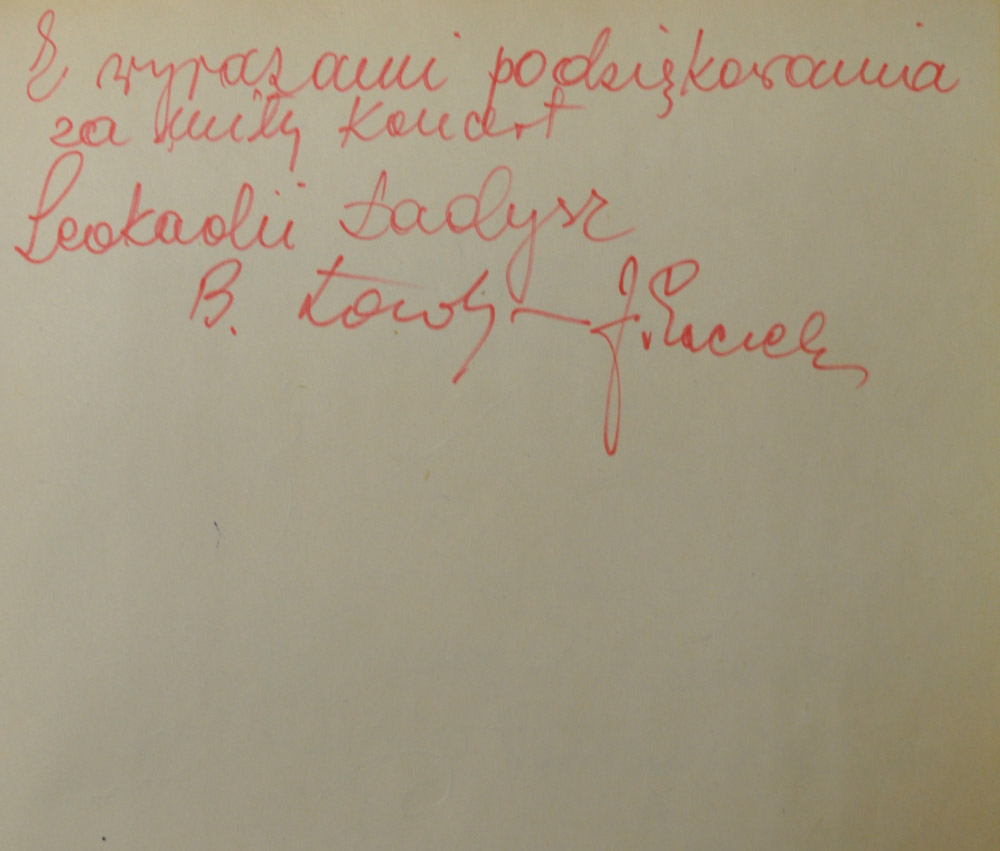 Z wyrazami podziękowania
za miły koncert
Leokadii Ładysz
B. J.